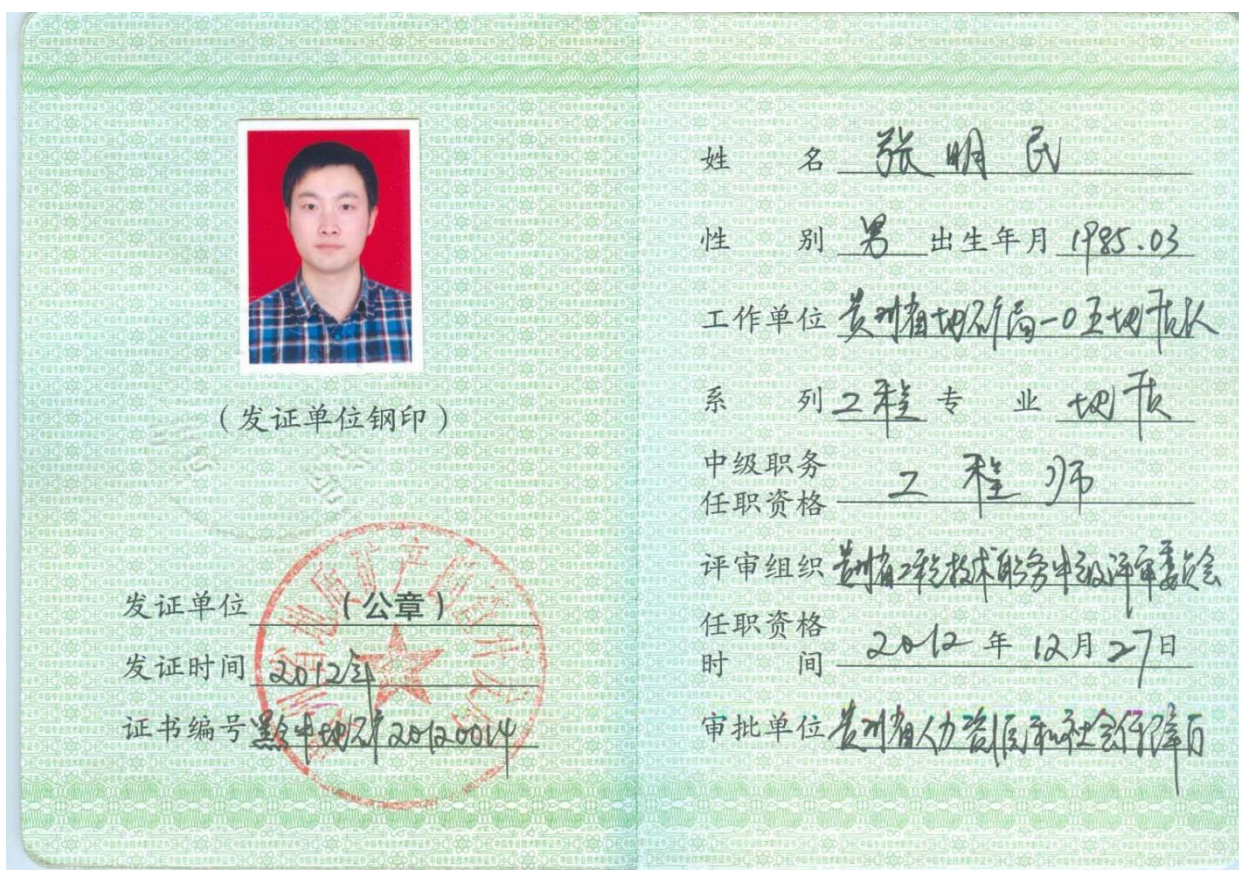 （发证单位钢印）
发证单位（公章）
发证时间 2012年
证书编号 黔中地矿20120014
姓名 张明民
性别 男 出生年月 1985.03
工作单位 贵州省地矿局一0五地质队
系列 工程 专业 地质
中级职务
任职资格 工程师
评审组织 贵州省工程技术职务中级评审委员会
任职资格
时间 2012年12月27日
审批单位 贵州省人力资源和社会保障厅